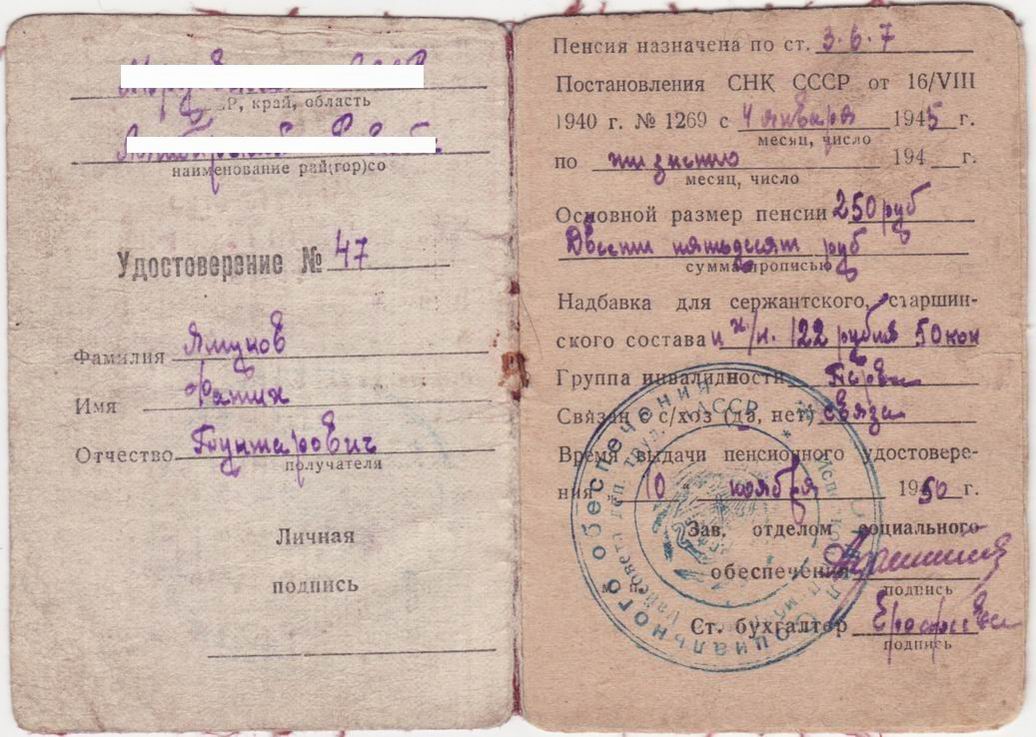 край, область
наименование рай(гор)со
Удостоверение № 47
Фамилия Ямуков
Имя Фатих
Отчество
получателя
Личная
подпись
Пенсия назначена по ст. 3.6.7
Постановления СНК СССР от 16/VIII
1940 г. № 1269 с 4 января 1945 г.
месяц, число
по 194 г.
месяц, число
Основной размер пенсии 250 руб
Двести пятьдесят руб
сумма прописью
Надбавка для сержантского, старшин-
ского состава 122 рубля 50 коп
Группа инвалидности
Связан с с/хоз (да, нет) связан
Время выдачи пенсионного удостовере-
ния 10 ноября 1950 г.
Зав. отделом социального
обеспечения
подпись
Ст. бухгалтер
подпись
социального обеспечения